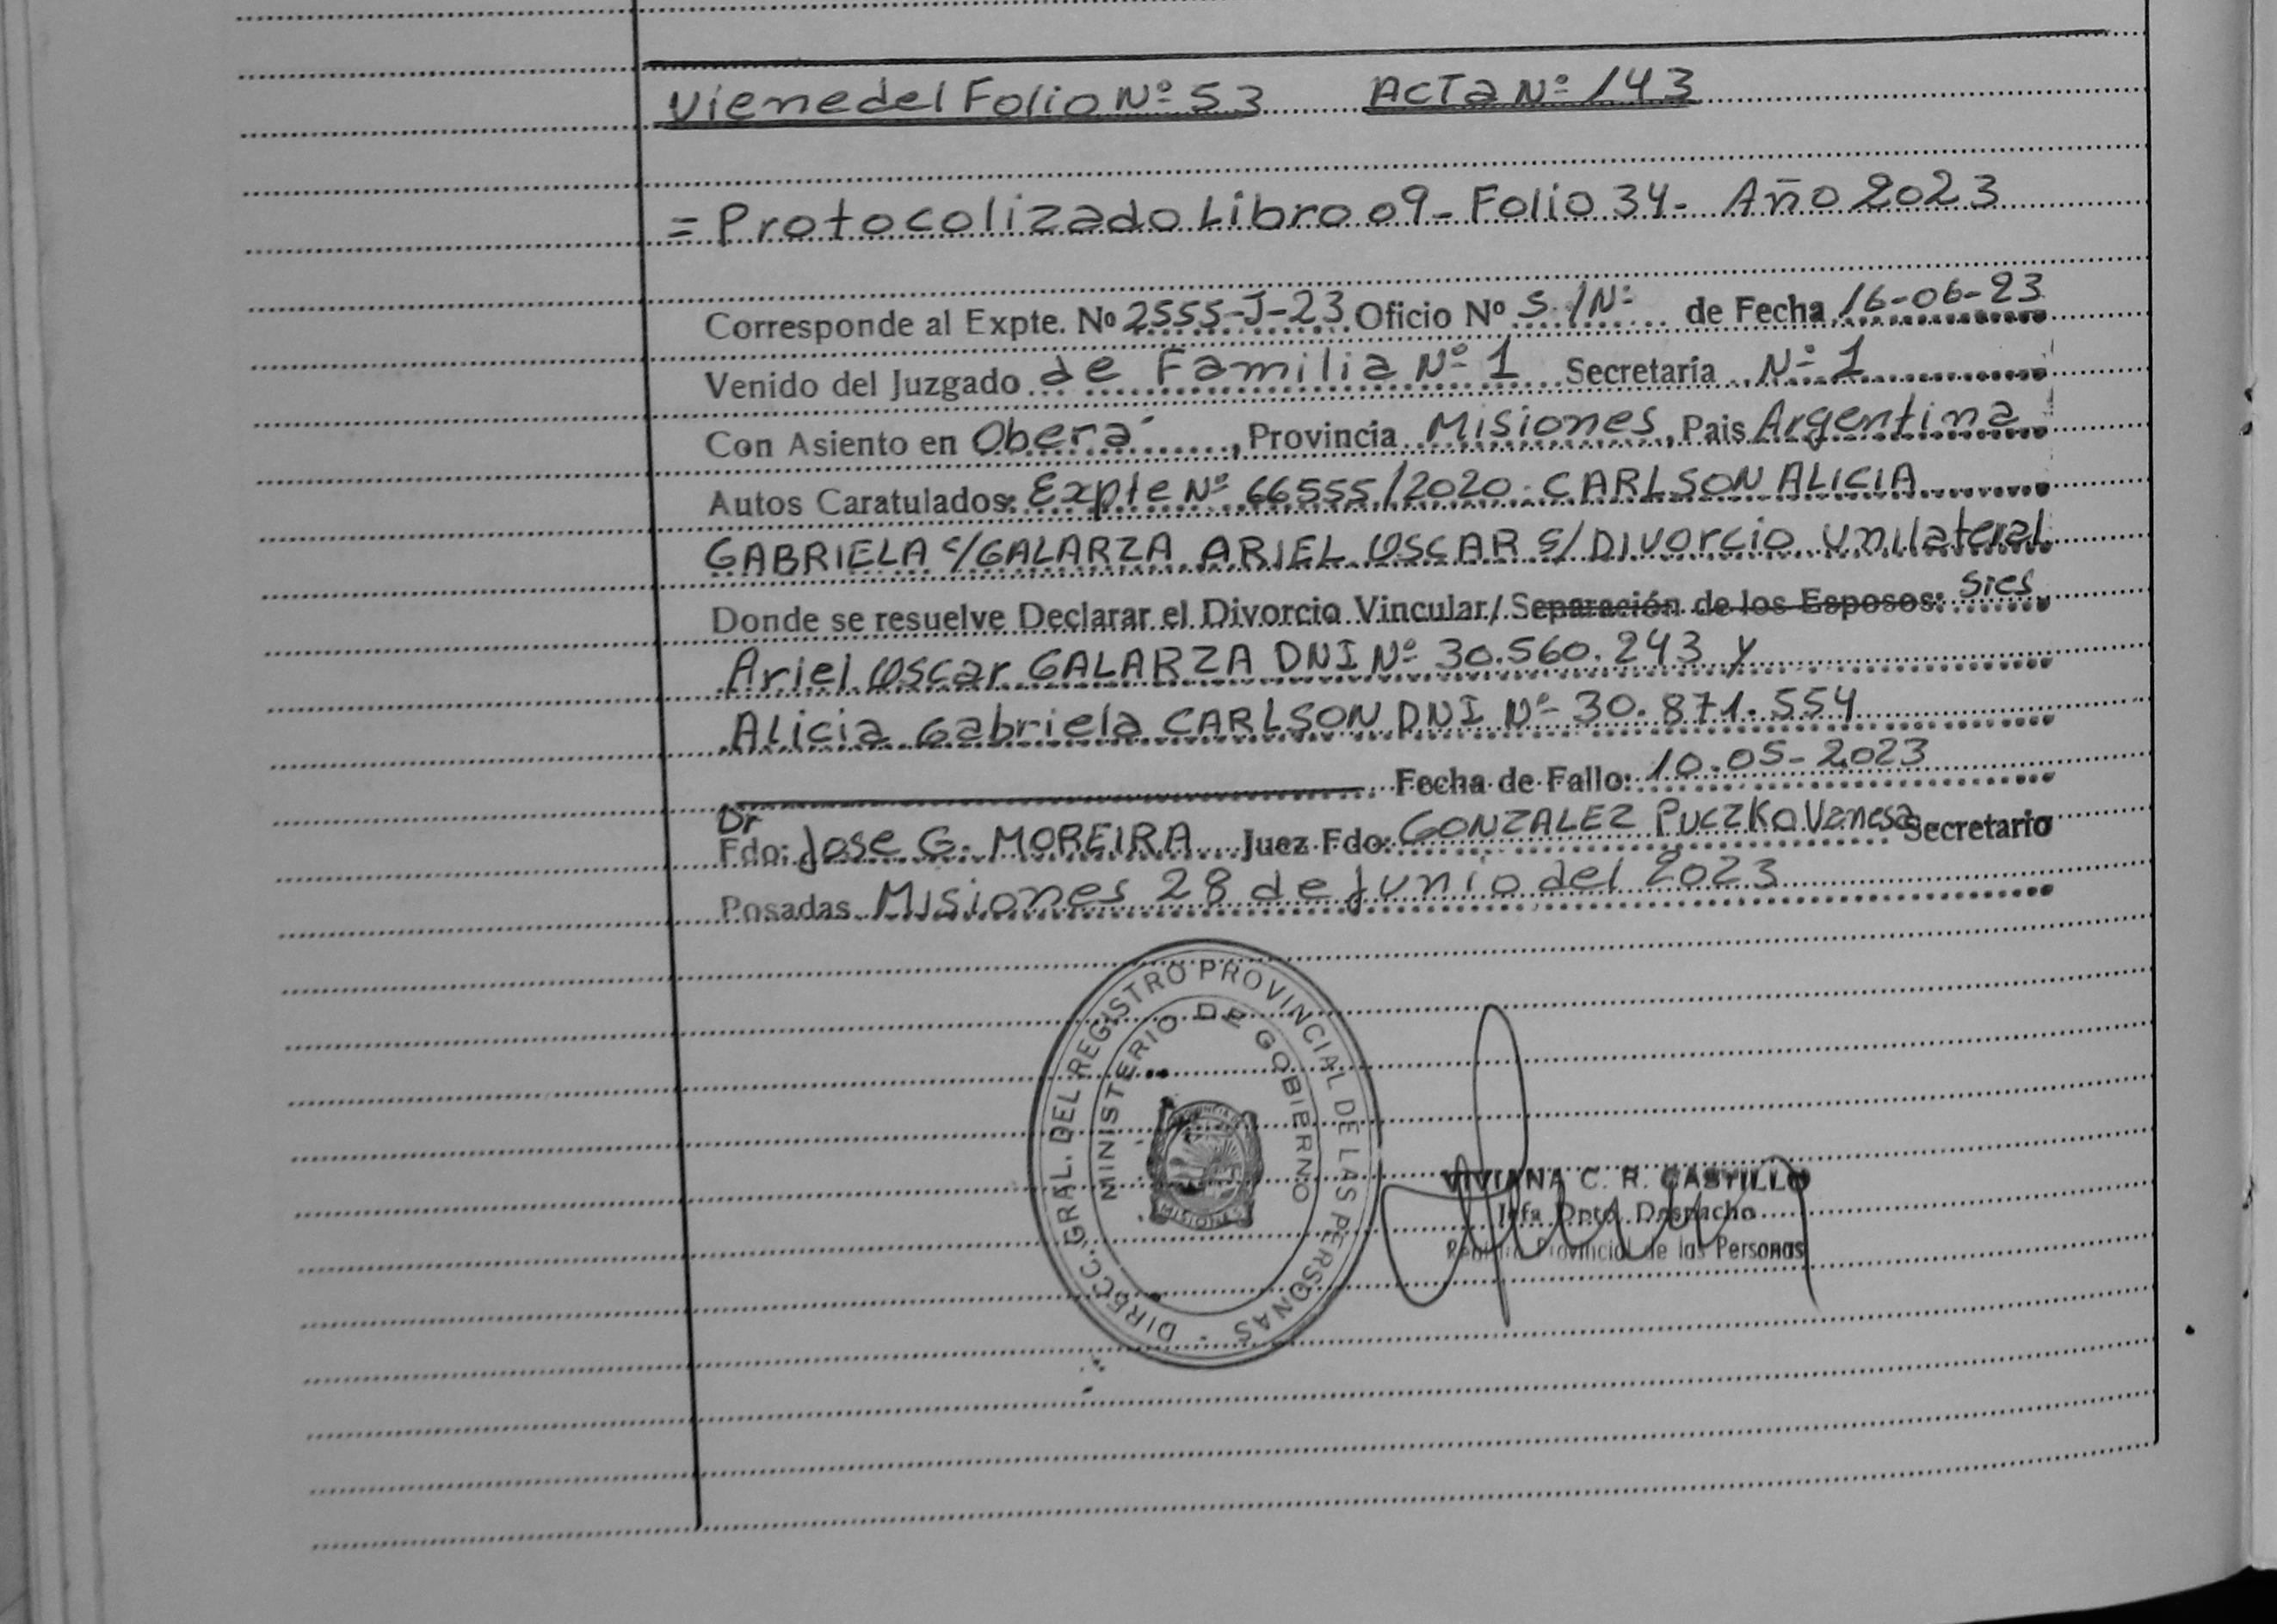 Viene del Folio Nº 53 Acta Nº 143
= Protocolizado Libro 09 - Folio 34 - Año 2023
Corresponde al Expte. Nº 2555-J-23 Oficio Nº S/Nº de Fecha 16-06-23
Venido del Juzgado de Familia Nº 1 Secretaría Nº 1
Con Asiento en Oberá, Provincia Misiones, Pais Argentina
Autos Caratulados: Expte Nº 66555/2020 CARLSON ALICIA
GABRIELA c/GALARZA ARIEL OSCAR s/ Divorcio unilateral
Donde se resuelve Declarar el Divorcio Vincular / Separación de los Esposos: Sres
Ariel Oscar GALARZA DNI Nº 30.560.243 y
Alicia Gabriela CARLSON DNI Nº 30.871.554
Fecha de Fallo: 10-05-2023
Dr
Fdo: Jose G. MOREIRA Juez Fdo: GONZALEZ Puczko Vanesa Secretario
Posadas Misiones 28 de junio del 2023
DIRECC. GRAL. DEL REGISTRO PROVINCIAL DE LAS PERSONAS -
MINISTERIO DE GOBIERNO
MISIONES
VIVIANA C. R. CASTILLO
Jefa Dpto. Despacho
Registro Provincial de las Personas